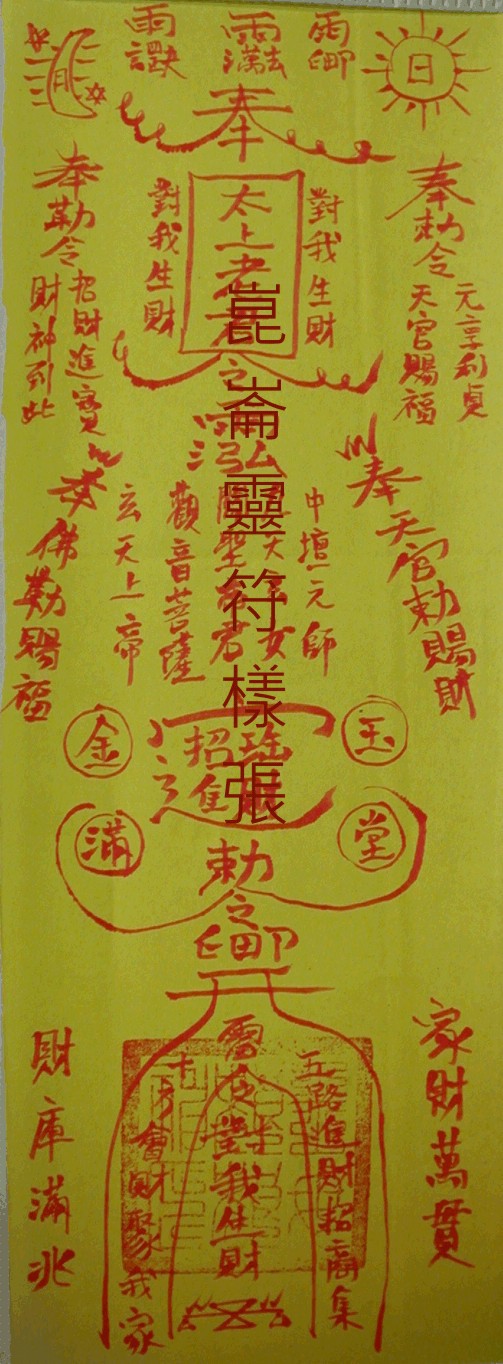 日
月
奉
太上老君
對我生財
對我生財
奉勅令
元亨利貞
天官賜福
奉勅令
招財進寶
財神到此
崑崙靈符樣張
奉天官勅賜財
奉佛勅賜福
中壇元師
觀音菩薩
玄天上帝
玉
金
堂
滿
招
進
勅
令
家財萬貫
財庫滿兆
五路進財招商集
令對我生財
十方會財聚我家